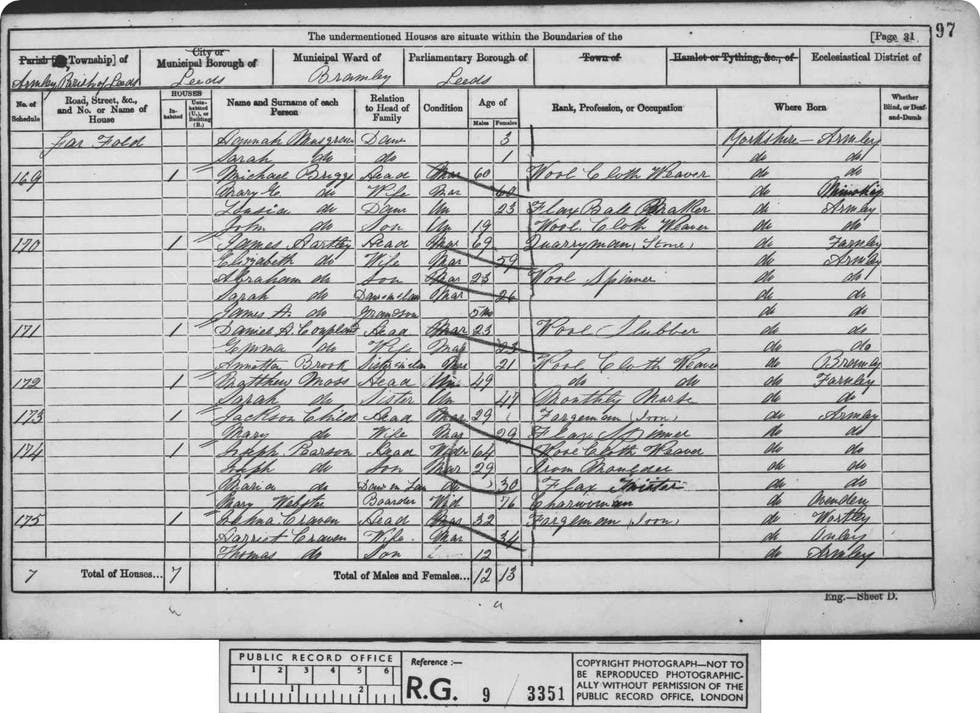 The undermentioned Houses are situate within the Boundaries of the [Page 31 97
Parish [or Township] of City or Municipal Borough of Municipal Ward of Parliamentary Borough of Town of Hamlet or Tything, &c., of Ecclesiastical District of
Armley Parish of Leeds Leeds Bramley Leeds
No. of Schedule Road, Street, &c., and No. or Name of House HOUSES Inhabited Uninhabited (U.), or Building (B.) Name and Surname of each Person Relation to Head of Family Condition Age of Males Females Rank, Profession, or Occupation Where Born Whether Blind, or Deaf-and-Dumb
Far Fold Hannah Musgrave Daur 3 Yorkshire - Armley
Sarah do do 1 do do
169 1 Michael Briggs Head Mar 60 Wool Cloth Weaver do do
Mary E. do Wife Mar 60 do
do Daur Un 23 Flax Ball do Armley
John do Son Un 19 Wool Cloth Weaver do do
170 1 James Hartley Head Mar 69 Quarryman (Stone) do Farnley
Elizabeth do Wife Mar 59 do Armley
Abraham do Son Mar 23 Wool Spinner do do
Sarah do Daur in law Mar 26 do do
James H. do Grandson 5 mo do do
171 1 Daniel A. Head Mar 23 Wool Slubber do do
Emma do Wife Mar 23 do do
Brook Sister in law 21 Wool Cloth Weaver do Bramley
172 1 Matthew Moss Head Un 49 do do do Farnley
Sarah do Sister Un 47 Monthly Nurse do do
173 1 Jackson Child Head Mar 29 Forgeman (Iron) do Armley
Mary do Wife Mar 29 Flax Spinner do do
174 1 Joseph Head Widr 64 Wool Cloth Weaver do do
Joseph do Son Mar 29 Iron Moulder do do
Maria do Daur in Law do 30 Flax do do
Mary Webster Boarder Wid 76 Charwoman do
175 1 Craven Head Mar 32 Forgeman (Iron) do Wortley
Harriet Craven Wife Mar 34 do
Thomas do Son 12 do Armley
7 Total of Houses... 7 Total of Males and Females... 12 13
Eng.—Sheet D.
PUBLIC RECORD OFFICE
1 2 3 4 5 6
1 2
Reference :—
R.G. 9 / 3351
COPYRIGHT PHOTOGRAPH—NOT TO
BE REPRODUCED PHOTOGRAPHIC-
ALLY WITHOUT PERMISSION OF THE
PUBLIC RECORD OFFICE, LONDON